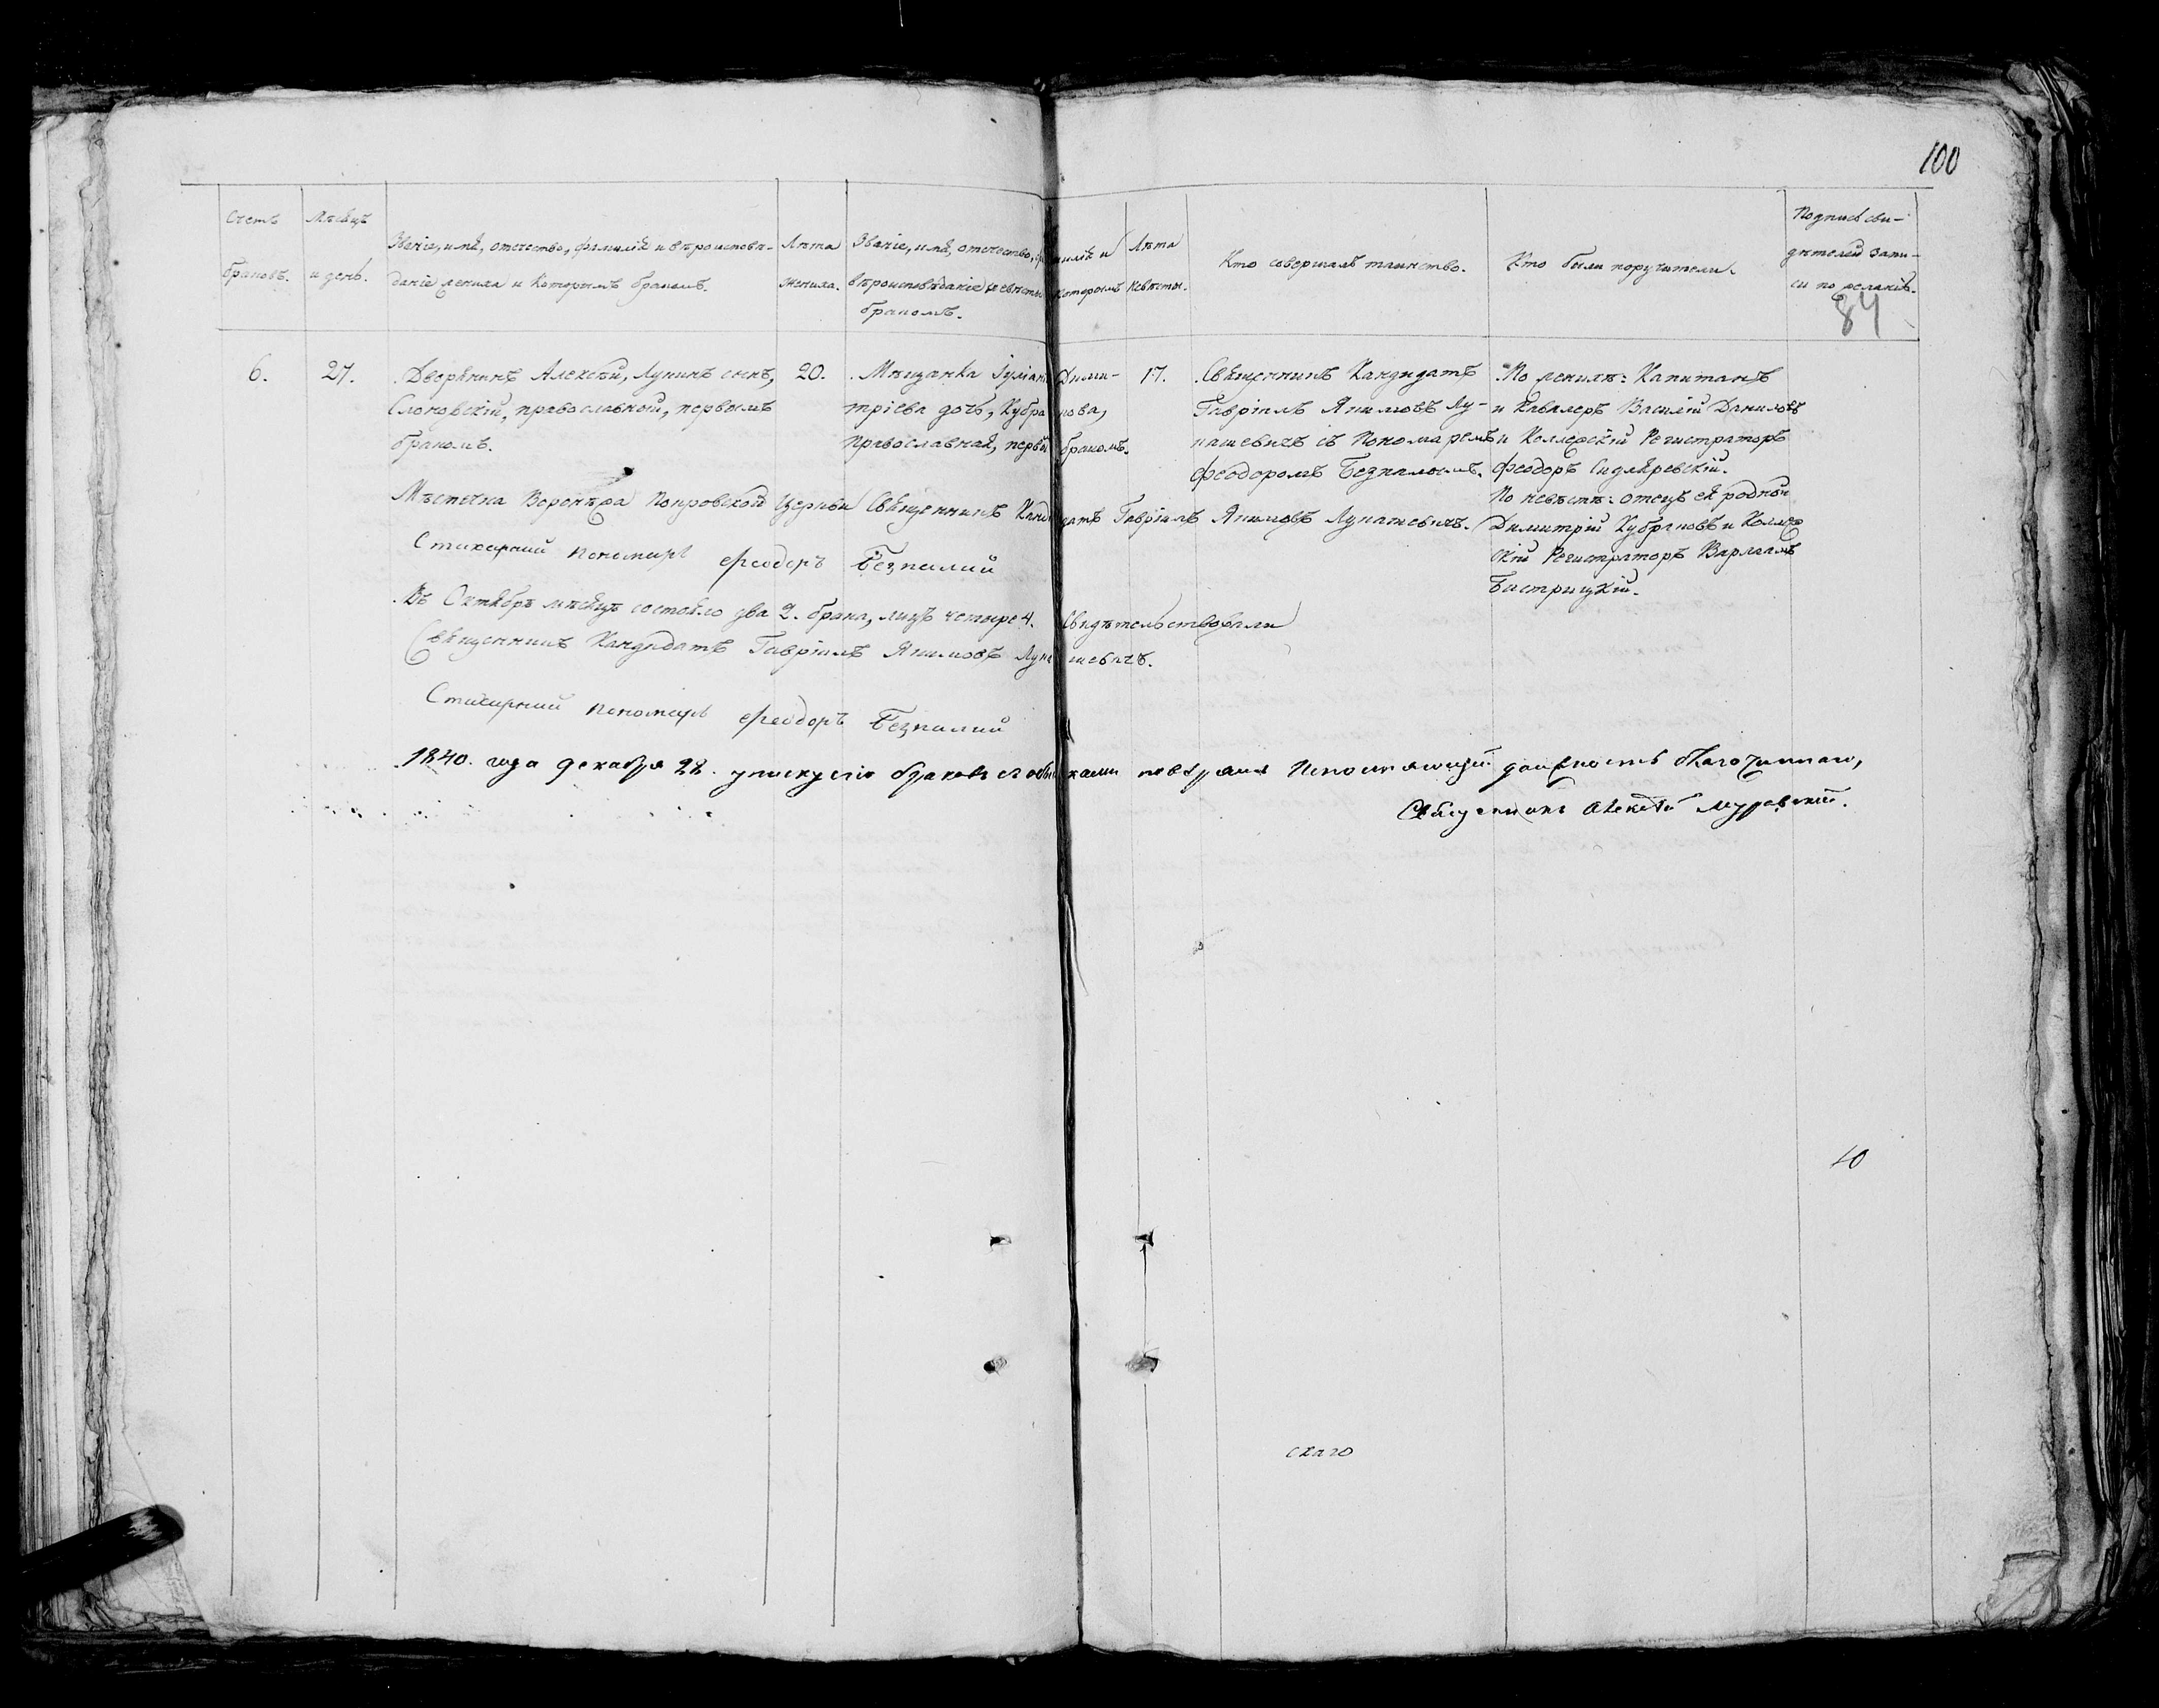 100
Счетъ браковъ.
Мѣсяцъ и день.
Званіе, имя, отечество, фамилія и вѣроисповѣ-
даніе жениха и которымъ бракомъ.
Лѣта жениха.
Званіе, имя, отечество, фамилія и
вѣроисповѣданіе невѣсты которымъ
бракомъ.
Лѣта невѣсты.
Кто совершалъ таинство.
Кто были поручители.
Подписи сви-
дѣтелей запи-
си по желанію.
84
6.
27.
Дворянинъ Алексѣй, Лукинъ сынъ,
Слоновскій, православной, первымъ
бракомъ.
20.
Мѣщанка Іуліана Дими-
тріева дочь, Кубракова,
православная, первы бракомъ.
17.
Священникъ Кандидатъ
Гавріилъ Якимовъ Лу-
кашевичъ съ Пономаремъ
Феодоромъ Безпалымъ.
По женихѣ: Капитанъ
и Кавалеръ Василій Даниловъ
и Коллежскій Регистраторъ
Феодоръ Сидляревскій.
По невѣстѣ: отецъ ея родной
Димитрій Кубраковъ и Коллеж
скій Регистраторъ Варлаамъ
Быстрицкій.
Мѣстечка Воронѣжа Покровской Церкви Священникъ Кандидатъ Гавріилъ Якимовъ Лукашевичъ.
Стихарный пономарь Феодоръ Безпалий
Въ Октябрѣ мѣсяцѣ состояло два 2. брака, лицъ четыре 4. Свидѣтельствовали
Священникъ Кандидатъ Гавріилъ Якимовъ Лукашевичъ.
Стихарний пономарь Феодоръ Безпалий
1840. года декабря 28. браковъ съ обысками повѣрялъ Исполняющій должность благочиннаго,
Священникъ Алексѣй Муравскій.
10
скаго